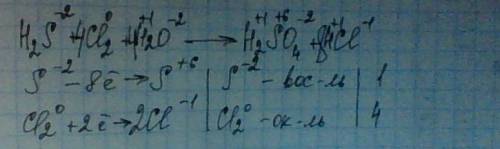 H₂S⁻² + 4Cl₂⁰ + 4H₂⁺¹O⁻² → H₂⁺¹S⁺⁶O₄⁻² + 8H⁺¹Cl⁻¹
S⁻² - 8ē → S⁺⁶ | S⁻² - вос-ль | 1
Cl₂⁰ + 2ē → 2Cl⁻¹ | Cl₂⁰ - ок-ль | 4